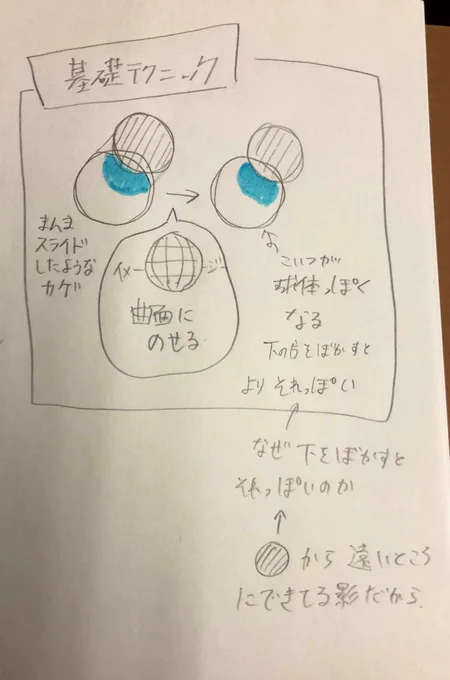 基礎テクニック
まんま
スライド
したような
カゲ
イメージ
曲面に
のせる
こいつが
球体っぽく
なる
下の方をぼかすと
よりそれっぽい
なぜ下をぼかすと
それっぽいのか
から遠いところ
にできてる影だから.